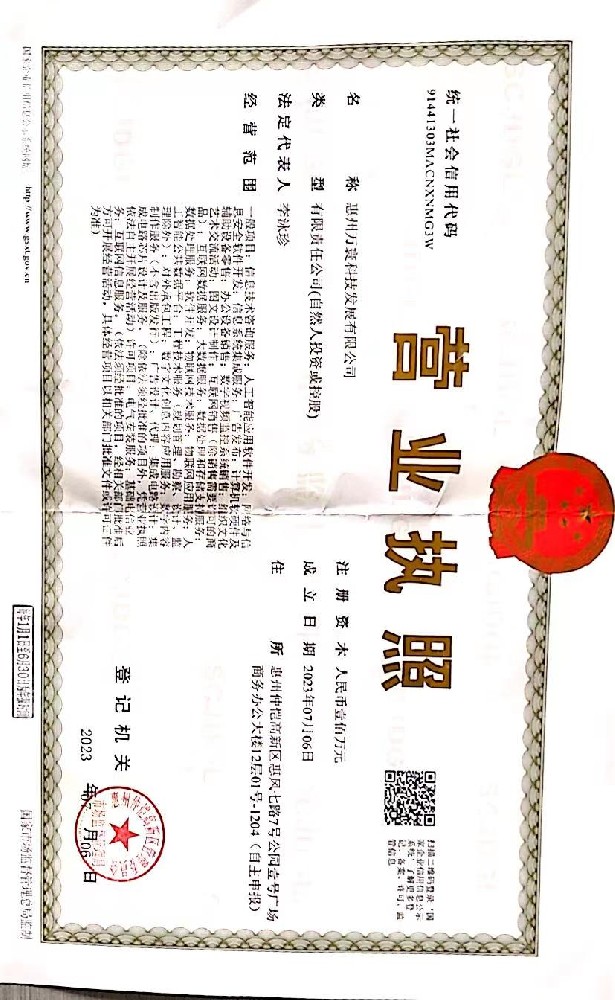 营业执照
统一社会信用代码
91441303MACNXNMG3W
扫描二维码登录“国
家企业信用信息公示
系统”了解更多登
记、备案、许可、监
管信息
名 称 惠州万寰科技发展有限公司
类 型 有限责任公司(自然人投资或控股)
法定代表人 李泳珍
经营范围 一般项目：信息技术咨询服务；人工智能应用软件开发；网络与信
息安全软件开发；信息系统集成服务；广告发布；计算机软硬件及
辅助设备零售；办公设备销售；数字视频监控系统销售；组织文化
艺术交流活动；图文设计制作；互联网销售（除销售需要许可的商
品）；互联网数据服务；大数据服务；数据处理和存储支持服务；
数据处理服务；软件开发；物联网技术服务；物联网应用服务；人
工智能公共数据平台；工程技术服务（规划管理、勘察、设计、监
理除外）；对外承包工程；数字文化创意内容应用服务；数字内容
制作服务（不含出版发行）；广告设计、代理；集成电路设计；集
成电路芯片设计及服务。（除依法须经批准的项目外，凭营业执照
依法自主开展经营活动）许可项目：电气安装服务；基础电信业
务；互联网信息服务。（依法须经批准的项目，经相关部门批准后
方可开展经营活动，具体经营项目以相关部门批准文件或许可证件
为准）
注册资本 人民币壹佰万元
成立日期 2023年07月06日
住 所 惠州仲恺高新区惠风七路7号公园壹号广场
商务办公大楼12层01号-1204（自主申报）
登记机关
2023 年 月06日
http://www.gsxt.gov.cn
国家市场监督管理总局监制